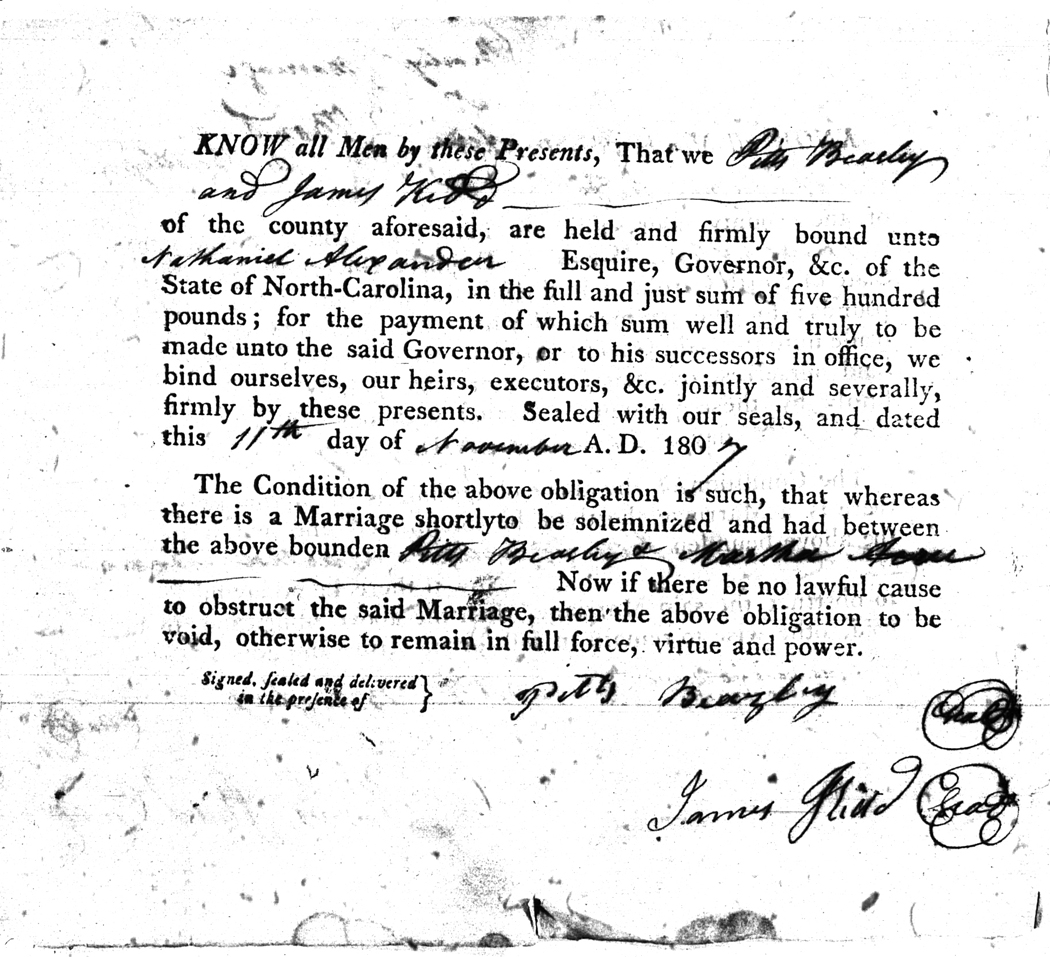 KNOW all Men by these Presents, That we Pitts Beasley
and James Kidd
of the county aforesaid, are held and firmly bound unto
Nathaniel Alexander Esquire, Governor, &c. of the
State of North-Carolina, in the full and just sum of five hundred
pounds; for the payment of which sum well and truly to be
made unto the said Governor, or to his successors in office, we
bind ourselves, our heirs, executors, &c. jointly and severally,
firmly by these presents. Sealed with our seals, and dated
this 11th day of November A. D. 1807
The Condition of the above obligation is such, that whereas
there is a Marriage shortlyto be solemnized and had between
the above bounden Pitts Beasley & Martha
Now if there be no lawful cause
to obstruct the said Marriage, then the above obligation to be
void, otherwise to remain in full force, virtue and power.
Signed, sealed and delivered
in the presence of
Pitts Beazley
James Kidd